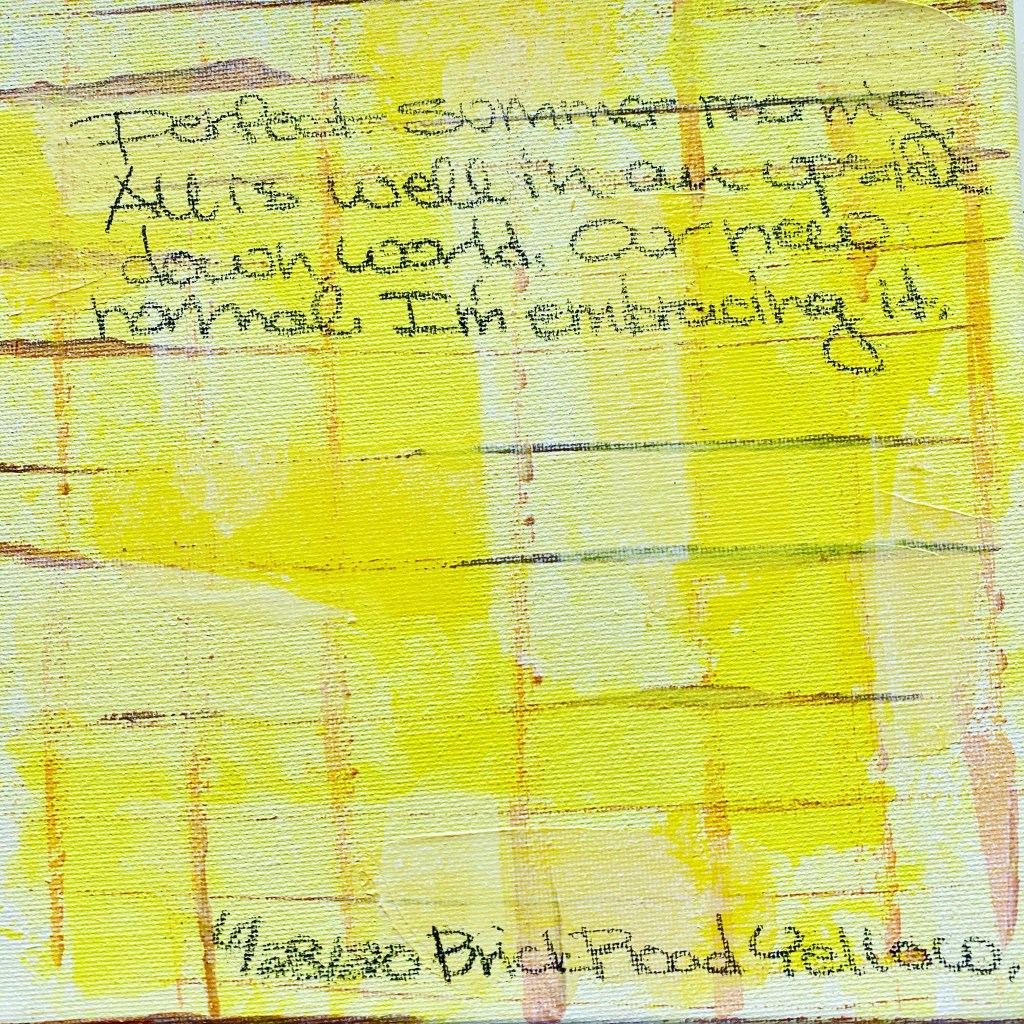 Perfect Summer
All is well in an upside
down world. Our new
normal. I'm embracing it.
Yellow Brick Road Yellow.